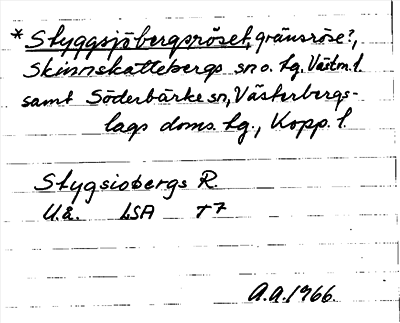 * Styggsjöbergsröset, gränsröse?,
Skinnskattebergs sn o. tg. Västm. l.
samt Söderbärke sn, Västerbergs-
lags doms. tg., Kopp. l.
Stygsiobergs R.
U.å. LSA T7
A.A. 1966.